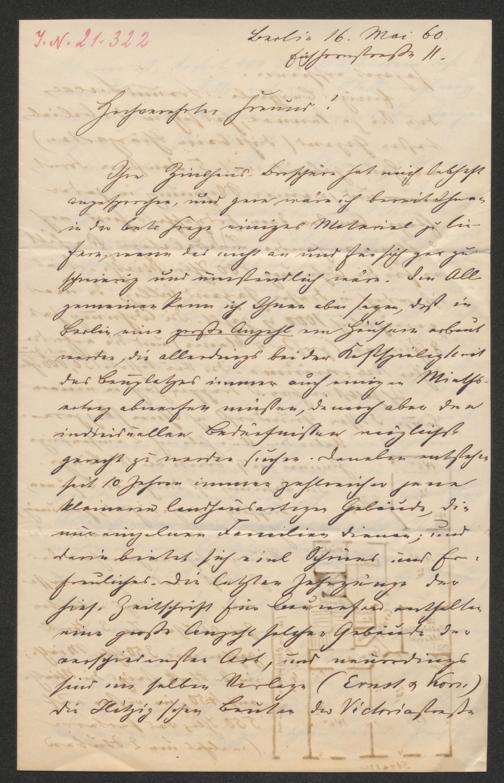 J.N. 21.322
Berlin 16. Mai 60.
Eichhornstraße 11.
Hochverehrter Freund!
Ihre Zinshaus-Broschüre hat mich lebhaft
angesprochen, und gern wäre ich bereit Ihnen
in der betr. Frage einiges Material zu lie-
fern, wenn das nicht an und für sich gar zu
schwierig und umständlich wäre. Im All-
gemeinen kann ich Ihnen aber sagen, daß in
Berlin eine große Anzahl von Häusern erbaut
werden, die allerdings bei der Kostspieligkeit
des Bauplatzes immer auch einigen Mieths-
ertrag abwerfen müssen, dennoch aber den
individuellen Bedürfnissen möglichst
gerecht zu werden suchen. Daneben entstehen
seit 10 Jahren immer zahlreicher jene
kleineren landhausartigen Gebäude, die
nur einzelnen Familien dienen, und
darin bietet sich viel Schönes und Er-
freuliches. Die letzten Jahrgänge der
hies. Zeitschrift für Bauwesen enthalten
eine große Anzahl solcher Gebäude der
verschiedensten Art, und neuerdings
sind im selben Verlage (Ernst & Korn)
die Hitzig'schen Bauten der Victoriastraße